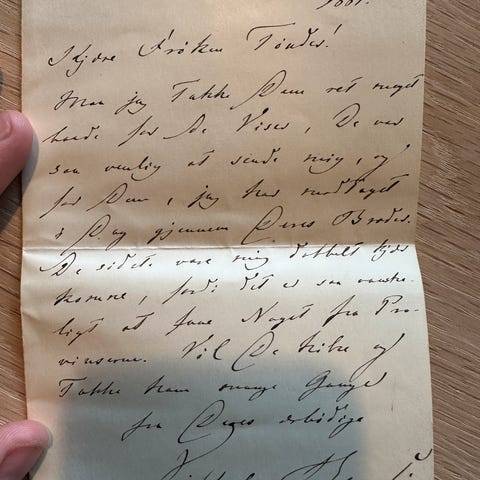 1881.
Kjære Frøken Töndes!
Maa jeg Takke Dem ret meget
baade for de Viser, De var
saa venlig at sende mig, og
for dem, jeg har modtaget
i Dag gjennem Deres Broder.
De sidste vare mig dobbelt kjær-
komne, fordi det er saa vanske-
ligt at faae Noget fra Pro-
vinserne. Vil De hilse og
Takke ham mange Gange
fra Deres ærbødige